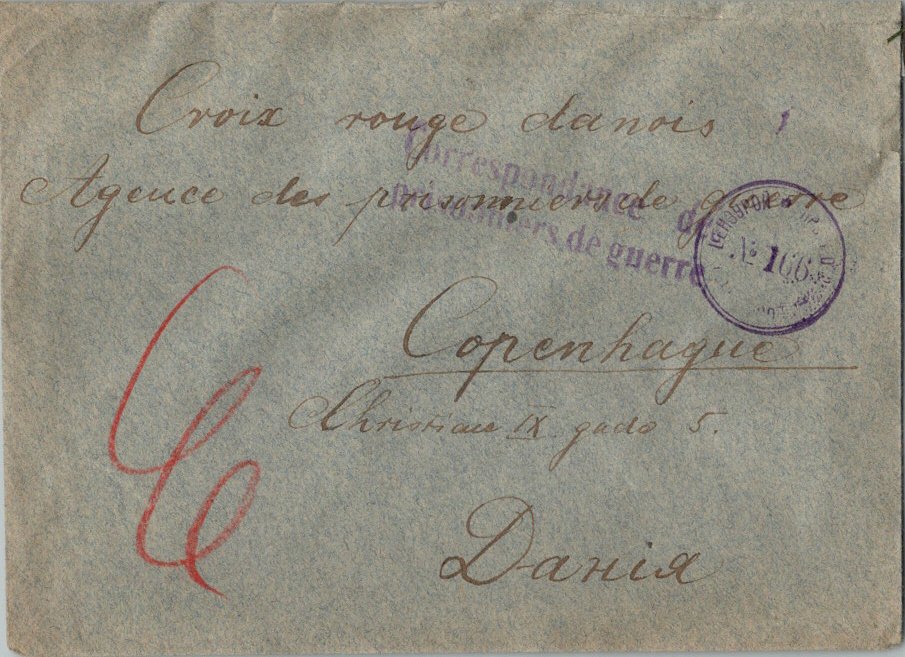 Croix rouge danois
Agence des prisonniers de guerre
Correspondance de
prisonniers de guerre
№ 166
Copenhague
Christian IX gade 5.
Данія